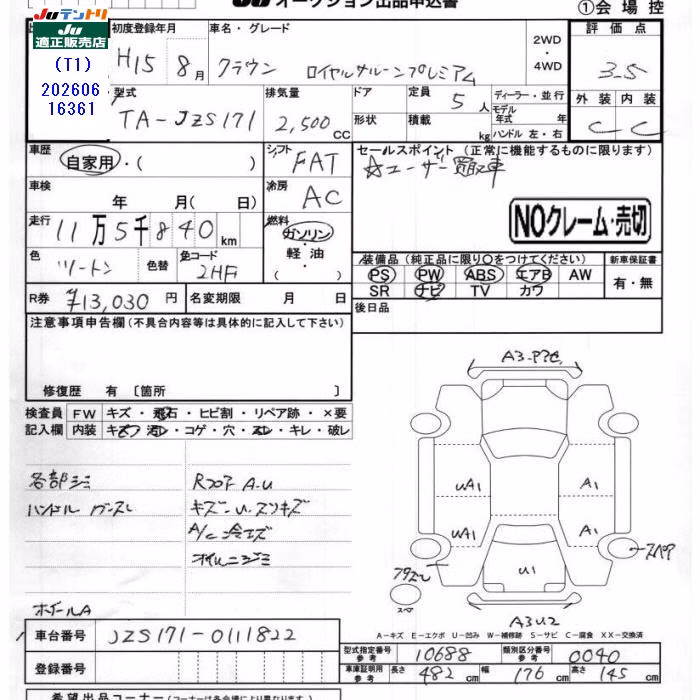 Juテントリ
Ju適正販売店
(T1)
202606
16361
オークション出品申込書
①会場控
初度登録年月
車名・グレード
2WD
・
4WD
評価点
H15 8月
クラウン ロイヤルサルーンプレミアム
3.5
型式
排気量
ドア
定員
ディーラー・並行
外装
内装
TA-JZS171
2,500 CC
5人
モデル
年式 年
C C
形状
積載
kg
ハンドル 左・右
車歴
自家用・( )
シフト
FAT
セールスポイント(正常に機能するものに限ります)
☆ユーザー買取車
車検
年 月( 日)
冷房
AC
NOクレーム・売切
走行
11万5千840km
燃料
ガソリン・
軽油・
( )
色
ツートン
色替
色コード
2HF
装備品(純正品に限り○をつけてください)
新車保証書
PS PW ABS エアB AW
有・無
SR ナビ TV カワ
R券
¥13,030円
名変期限 月 日
後日品
注意事項申告欄(不具合内容等は具体的に記入して下さい)
修復歴 有〔箇所 〕
検査員
記入欄
FW キズ・飛石・ヒビ割・リペア跡・×要
内装 キズ・汚レ・コゲ・穴・スレ・キレ・破レ
各部シミ
ハンドル
RフロアA.U
キズ・U・スリキズ
A/C冷エズ
オイルニジミ
ホイールA
A3
UA1
A1
UA1
A1
U1
スペア
スマ
A3U2
A−キズ E−エクボ U−凹み W−補修跡 S−サビ C−腐食 XX−交換済
車台番号
JZS171-0111822
登録番号
型式指定番号
参考
10688
類別区分番号
参考
0040
車庫証明用
参考
長さ 482cm
幅 176cm
高さ 145cm
希望出品コーナー(コーナーは各会場により異なります。)